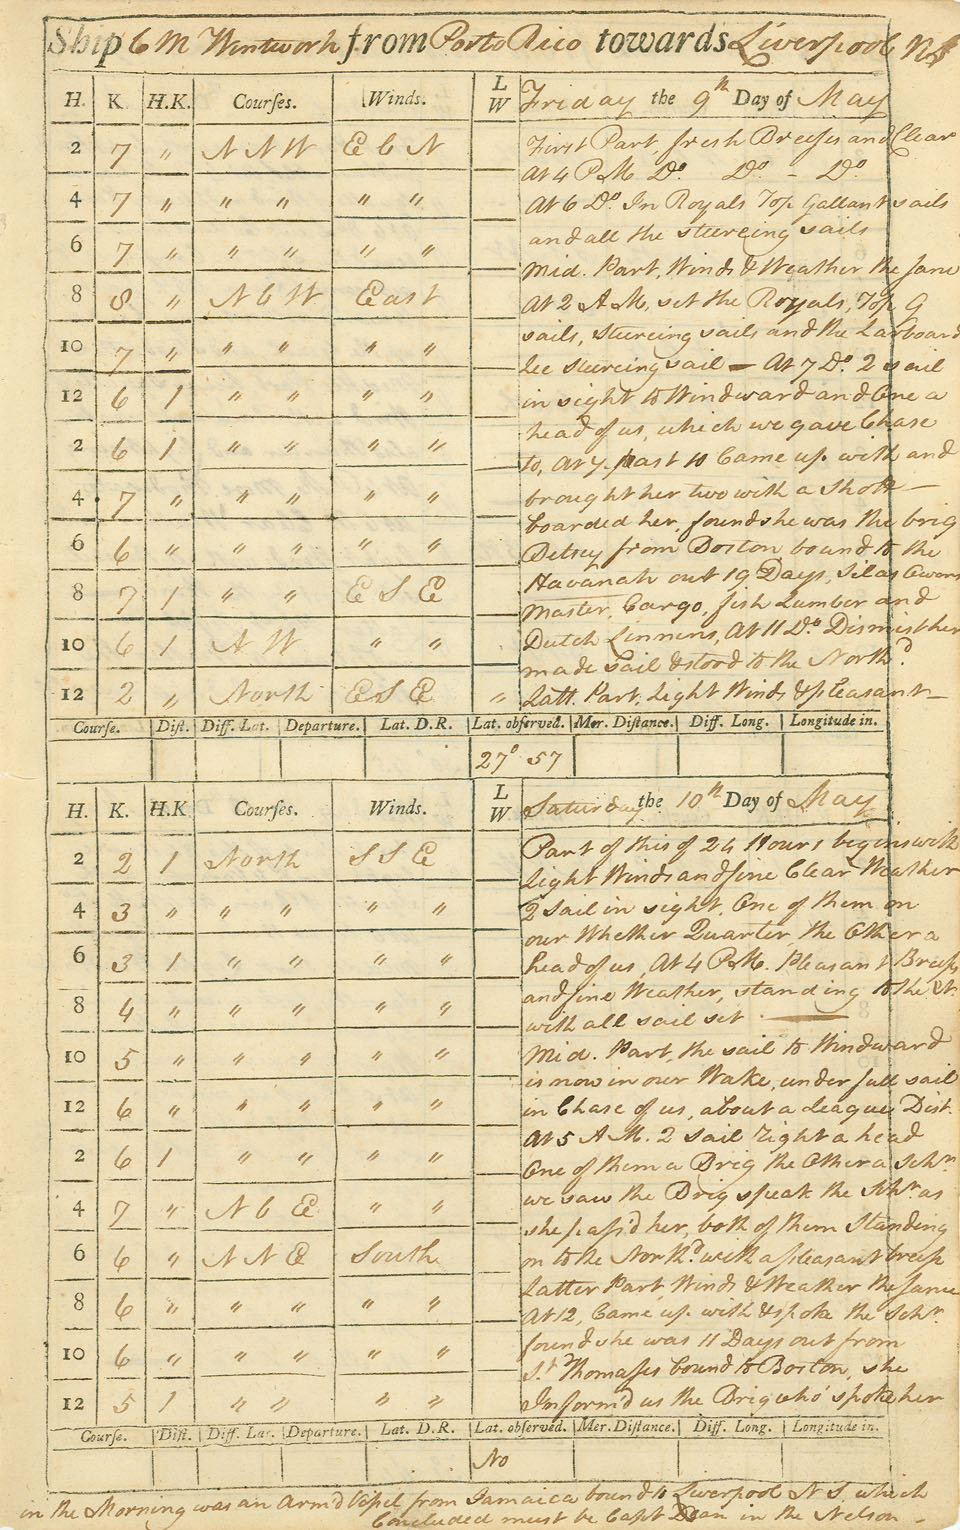 Ship C M Wentworth from Porto Rico towards Liverpool NS
H. K. H.K. Courſes. Winds. L W Friday the 9th Day of May
2 7 " N N W E b N
4 7 " " " " "
6 7 " " " " "
8 8 " N b W East
10 7 " " " " "
12 6 1 " " " "
2 6 1 " " " "
4 7 " " " " "
6 6 " " " " "
8 7 1 " " E S E
10 6 1 N W " "
12 2 " North E S E "
First Part, fresh Breeſes and Clear
At 4 P.M. Do. Do. - Do.
At 6 Do. In Royals Top Gallant sails
and all the steereing sails
Mid. Part, Winds & Weather the same
At 2 A.M, set the Royals, Top G
sails, steereing sails and the Larboard
lee steereing sail — At 7 Do. 2 sail
in sight to Windward and One a
head of us, which we gave Chase
to, At ½ past 10 Came up with and
brought her two with a Shott —
boarded her, found she was the brig
Betsey from Boston bound to the
Havanah out 19 Days, Silas
Master, Cargo, fish Lumber and
Dutch Linnens, At 11 Do. Dismist her
made sail & stood to the Northd.
Latt. Part, Light Winds & pleasant —
Courſe. Diſt. Diff. Lat. Departure. Lat. D.R. Lat. obſerved. Mer. Diſtance. Diff. Long. Longitude in.
27° 57
H. K. H.K Courſes. Winds. L W Saturday the 10th Day of May
2 2 1 North S S E
4 3 " " " " "
6 3 1 " " " "
8 4 " " " " "
10 5 " " " " "
12 6 " " " " "
2 6 1 " " " "
4 7 " N b E " "
6 6 " N N E South
8 6 " " " " "
10 6 " " " " "
12 5 1 " " " "
Part of this of 24 Hours begins with
light Winds and fine Clear Weather
2 Sail in sight, One of them on
our Whether Quarter, the Other a
head of us, At 4 P.M. Pleasant Breeſes
and fine Weather, standing to the N.
with all sail set.
Mid. Part, the sail to Windward
is now in our Wake, under full sail
in Chase of us, about a league Dist.
At 5 A.M. 2 sail right a head
One of them a Brig the Other a Schr.
we saw the Brig speak the Schr. as
she paſs'd her, both of them Standing
on to the Northd. with a pleasant breeſe
Latter Part, Winds & Weather the same
At 12, Came up with & spoke the Schr.
found she was 11 Days out from
St. Thomaſses bound to Boston, she
Inform'd us the Brig who' spoke her
Courſe. Diſt. Diff. Lat. Departure. Lat. D.R. Lat. obſerved. Mer. Diſtance. Diff. Long. Longitude in.
No
in the Morning was an Arm'd Veſsel from Jamaica bound to Liverpool N.S. which
Concluded must be Capt Dean in the Nelson -